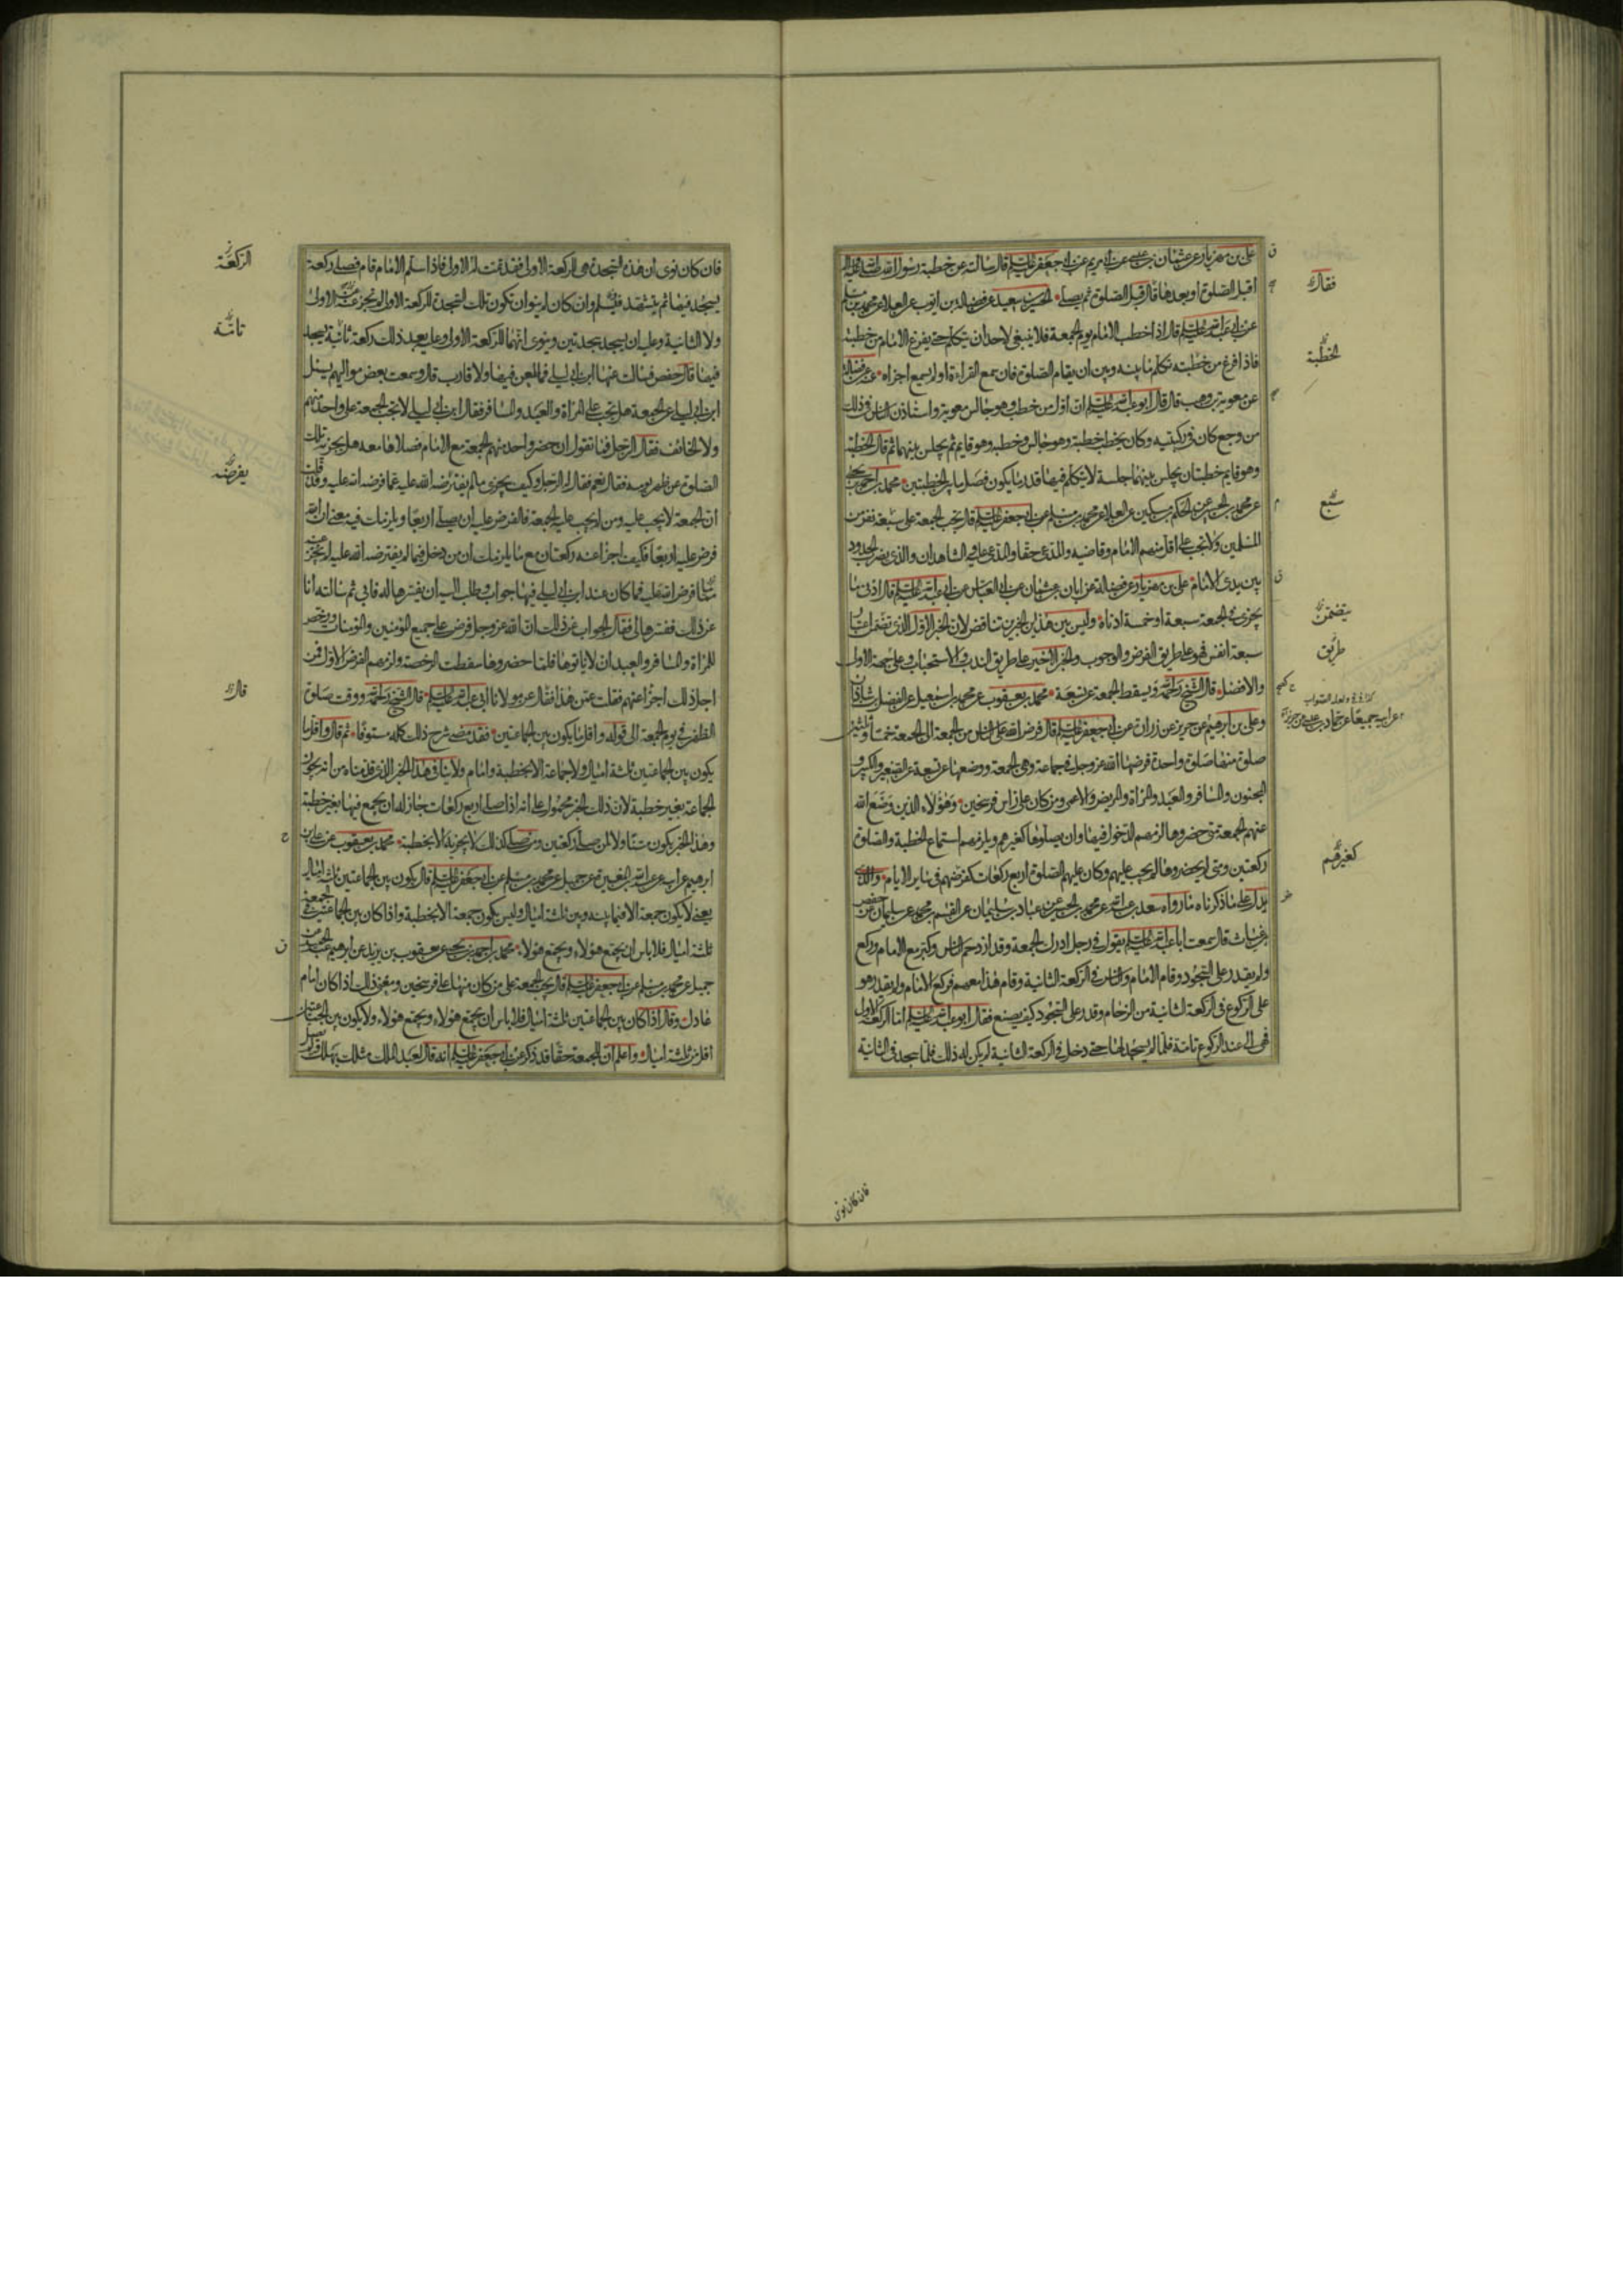 على بن مهزيار عن عثمان بن عيسى عن ابى مريم عن ابى جعفر عليه السلام قال سالته عن خطبة رسول الله صلى الله عليه واله
أقبل الصلوة او بعدها قال قبل الصلوة ثم يصلى الحسين بن سعيد عن فضالة بن ايوب عن العلا عن محمد بن مسلم
عن ابى عبد الله عليه السلام قال اذا خطب الامام يوم الجمعة فلا ينبغى لاحد ان يتكلم حتى يفرغ الامام من خطبته
فاذا فرغ من خطبته تكلم ما بينه وبين ان يقام الصلوة فان سمع القراءة او لم يسمع اجزاه عن فضالة
عن معوية بن وهب قال قال ابو عبد الله عليه السلام ان اول من خطب وهو جالس معوية واستاذن الناس فى ذلك
من وجع كان فى ركبتيه وكان يخطب خطبة وهو جالس وخطبة وهو قايم ثم يجلس بينهما ثم قال الخطبة
وهو قايم خطبتان يجلس بينهما جلسة لا يتكلم فيها قدر ما يكون فصل ما بين الخطبتين محمد بن احمد بن يحيى
عن محمد بن الحسين عن الحكم بن مسكين عن العلا عن محمد بن مسلم عن ابى جعفر عليه السلام قال تجب الجمعة على سبعة نفر من
المسلمين ولا تجب على اقل منهم الامام وقاضيه والمدعى حقا والمدعى عليه والشاهدان والذى يضرب الحدود
بين يدى الامام على بن مهزيار عن فضالة عن ابان بن عثمان عن ابى العباس عن ابى عبد الله عليه السلام قال ادنى ما
يجزى فى الجمعة سبعة او خمسة ادناه وليس بين هذين الخبرين تناقض لان الخبر الاول الذى تضمن اعتبار
سبعة انفس فهو على طريق الفرض والوجوب والخبر الاخير على طريق الندب والاستحباب وعلى جهة الاولى
والافضل قال الشيخ رحمه الله ويسقط الجمعة عن تسعة محمد بن يعقوب عن محمد بن اسمعيل عن الفضل بن شاذان
وعلى بن ابرهيم عن حريز عن زرارة عن ابى جعفر عليه السلام قال فرض الله على الناس من الجمعة الى الجمعة خمسا وثلثين
صلوة منها صلوة واحدة فرضها الله عز وجل فى جماعة وهى الجمعة ووضعها عن تسعة عن الصغير والكبير و
المجنون والمسافر والعبد والمراة والمريض والاعمى ومن كان على راس فرسخين وهؤلاء الذين وضع الله
عنهم الجمعة متى حضروها لزمهم الدخول فيها وان يصلوها كغيرهم ويلزمهم استماع الخطبة والصلوة
ركعتين ومتى لم يحضروها لم يجب عليهم وكان عليهم الصلوة اربع ركعات كفرضهم فى ساير الايام والذى
يدل على ما ذكرناه ما رواه سعد بن عبد الله عن محمد بن الحسين عن عباد بن سليمان عن القسم بن محمد عن سليمان عن حفص
بن غياث قال سمعت ابا عبد الله عليه السلام يقول فى رجل ادرك الجمعة وقد ازدحم الناس وكبر مع الامام وركع
ولم يقدر على السجود وقام الامام والناس فى الركعة الثانية وقام هذا معهم فركع الامام ولم يقدر هو
على الركوع فى الركعة الثانية من الزحام وقدر على السجود كيف يصنع فقال ابو عبد الله عليه السلام اما الركعة الاولى
فهى الى عند الركوع تامة فلما لم يسجد لها حتى دخل فى الركعة الثانية لم يكن له ذلك فلما سجد فى الثانية
فقال
الخطبة
سبع
يتضمن
طريق
كغيرهم
فان كان نوى
فان كان نوى ان هذه السجدة هى الركعة الاولى فقد تمت له الاولى فاذا سلم الامام قام فصلى ركعة
يسجد فيها ثم يتشهد ويسلم وان كان لم ينو ان تكون تلك السجدة للركعة الاولى لم تجز عنه الاولى
ولا الثانية وعليه ان يسجد سجدتين وينوى انهما للركعة الاولى وعليه بعد ذلك ركعة ثانية يسجد
فيها قال حفص فسالت عنها ابن ابى ليلى فما طعن فيها ولا قارب قال وسمعت بعض مواليهم يسئل
ابن ابى ليلى عن الجمعة هل تجب على المراة والعبد والمسافر فقال ابن ابى ليلى لا تجب الجمعة على واحد منهم
ولا الخائف فقال الرجل فما تقول ان حضر واحد منهم الجمعة مع الامام فصلاها معه هل يجزيه تلك
الصلوة عن ظهر يومه فقال نعم فقال له الرجل وكيف يجزى ما لم يفترضه الله عليه عما فرضه الله عليه وقد قلت
ان الجمعة لا يجب عليه ومن لم يجب عليه الجمعة فالفرض عليه ان يصلى اربعا ويلزمك فيه معنى ان الله
فرض عليه اربعا فكيف اجزا عنه ركعتان مع ما يلزمك ان من دخل فيما لم يفترضه الله عليه لم يجز عنه
مما فرض الله عليه فما كان عند ابن ابى ليلى فيها جواب وطلب اليه ان يفسرها له فابى ثم سالته انا
عن ذلك ففسرها لى فقال الجواب عن ذلك ان الله عز وجل فرض على جميع المؤمنين والمؤمنات ورخص
للمراة والمسافر والعبد ان لا ياتوها فلما حضروها سقطت الرخصة ولزمهم الفرض الاول فمن
اجل ذلك اجزا عنهم فقلت عمن هذا فقال عن مولانا ابى عبد الله عليه السلام قال الشيخ رحمه الله ووقت صلوة
الظهر فى يوم الجمعة الى قوله واقل ما يكون بين الجماعتين فقد مضى شرح ذلك كله مستوفا ثم قال واقل ما
يكون بين الجماعتين ثلثة اميال ولا جماعة الا بخطبة وامام ولا ينافى هذا الخبر الذى قدمناه من انه يجوز
الجماعة بغير خطبة لان ذلك الخبر محمول على انه اذا صلى اربع ركعات جاز له ان يجمع فيها بغير خطبة
وهذا الخبر يكون متناولا لمن صلى ركعتين ومن صلى كذلك لا يجزيه الا بخطبة محمد بن يعقوب عن على بن
ابرهيم عن ابيه عن عبد الله بن المغيرة عن جميل عن محمد بن مسلم عن ابى جعفر عليه السلام قال يكون بين الجماعتين ثلثة اميال
يعنى لا يكون جمعة الا فيما بينه وبين ثلثة اميال وليس يكون جمعة الا بخطبة واذا كان بين الجماعتين فى الجمعة
ثلثة اميال فلا باس ان يجمع هؤلاء ويجمع هؤلاء محمد بن احمد بن يحيى عن يعقوب بن يزيد عن ابرهيم بن عبد الحميد عن
جميل عن محمد بن مسلم عن ابى جعفر عليه السلام قال تجب الجمعة على من كان منها على فرسخين ومعنى ذلك اذا كان امام
عادل وقال اذا كان بين الجماعتين ثلثة اميال فلا باس ان يجمع هؤلاء ويجمع هؤلاء ولا يكون بين الجماعتين
اقل من ثلثة اميال واعلم ان للجمعة حقا قد ذكر عن ابى جعفر عليه السلام انه قال لعبد الملك مثلك يهلك ولم يصل
الركعة
تامة
يفرضه
قال